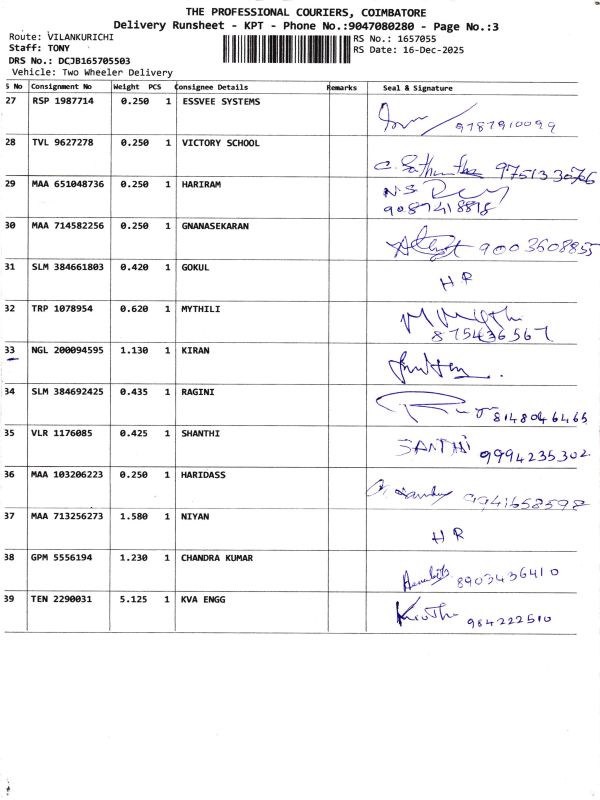 THE PROFESSIONAL COURIERS, COIMBATORE
Delivery Runsheet - KPT - Phone No.:9047080280 - Page No.:3
Route: VILANKURICHI
RS No.: 1657055
Staff: TONY
RS Date: 16-Dec-2025
DRS No.: DCJB165705503
Vehicle: Two Wheeler Delivery
S No Consignment No Weight PCS Consignee Details Remarks Seal & Signature
27 RSP 1987714 0.250 1 ESSVEE SYSTEMS
9787910099
28 TVL 9627278 0.250 1 VICTORY SCHOOL
9751330766
29 MAA 651048736 0.250 1 HARIRAM N.S
9087418818
30 MAA 714582256 0.250 1 GNANASEKARAN
9003608855
31 SLM 384661803 0.420 1 GOKUL
HR
32 TRP 1078954 0.620 1 MYTHILI
875436567
33 NGL 200094595 1.130 1 KIRAN
34 SLM 384692425 0.435 1 RAGINI
8148046465
35 VLR 1176085 0.425 1 SHANTHI
SANTHI 9994235302
36 MAA 103206223 0.250 1 HARIDASS
9941658598
37 MAA 713256273 1.580 1 NIYAN
HR
38 GPM 5556194 1.230 1 CHANDRA KUMAR
8903436410
39 TEN 2290031 5.125 1 KVA ENGG
984222510